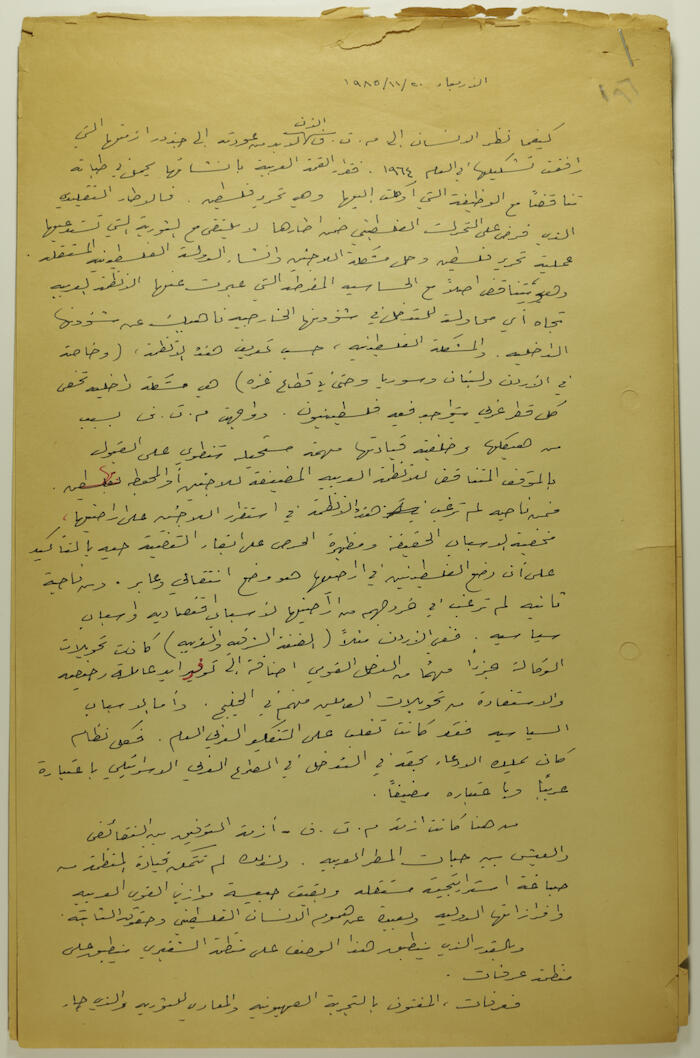 ١٩٦
الأربعاء ١٩٨٥/١١/٢٠
كيفما نظر الانسان إلى م.ت.ف الآن لا بد من عودته إلى جذور ازمتها التي
رافقت تشكيلها في العام ١٩٦٤. فقرار القمة العربية بانشائها يحمل في طياته
تناقضاً مع الوظيفة التي أوكلت إليها وهي تحرير فلسطين. فالاطار التقليدي
الذي فرض على التحرك الفلسطيني ضمن اطارها لا يلتقي مع الثورية التي تستدعيها
عملية تحرير فلسطين وحل مشكلة اللاجئين وانشاء الدولة الفلسطينية المستقلة.
وهو يتناقض اصلاً مع الحساسية المفرطة التي عبرت عنها الانظمة العربية
تجاه أي محاولة للتدخل في شؤونها الخارجية ناهيك عن شؤونها
الداخلية. والمشكلة الفلسطينية، حسب تعريف هذه الانظمة، (وخاصة
في الاردن ولبنان وسوريا وحتى في قطاع غزة) هي مشكلة داخلية تخص
كل قطر عربي يتواجد فيه فلسطينيون. وواجهت م.ت.ف بسبب
من هيكلها وخلفية قيادتها مهمة مستحيلة تنطوي على القبول
بالموقف المتناقض للانظمة العربية المضيفة للاجئين أو المحيطة بفلسطين.
فمن ناحية لم ترغب هذه الانظمة في استقرار اللاجئين على اراضيها،
مخفية الاسباب الحقيقية ومظهرة الحرص على ابقاء القضية حية بالتأكيد
على أن وضع الفلسطينيين في اراضيها هو وضع انتقالي وعابر. ومن ناحية
ثانية لم ترغب في خروجهم من اراضيها لأسباب اقتصادية واسباب
سياسية. ففي الاردن مثلاً (الضفة الشرقية والغربية) كانت تحويلات
الوكالة جزءاً مهماً من الدخل القومي اضافة إلى توفير ايد عاملة رخيصة
والاستفادة من تحويلات العاملين منهم في الخليج. وأما الاسباب
السياسية فقد كانت تغلب على التفكير العربي العام. فكل نظام
كان يملك الادعاء بحقه في التدخل في الصراع العربي الاسرائيلي باعتباره
عربياً وباعتباره مضيفاً.
من هنا كانت ازمة م.ت.ف - أزمة التوفيق بين النقائض
والعيش بين حبات المطر العربية. ولذلك لم تتمكن قيادة المنظمة من
صياغة استراتيجية مستقلة وبقيت حبيسة موازين القوى العربية
وافرازاتها الدولية وبعيدة عن هموم الانسان الفلسطيني وحقوقه الثابتة.
وبالقدر الذي ينطبق هذا الوصف على منظمة الشقيري ينطبق على
منظمة عرفات.
فعرفات، المفتون بالتجربة الصهيونية والمعادي للثورية والذي